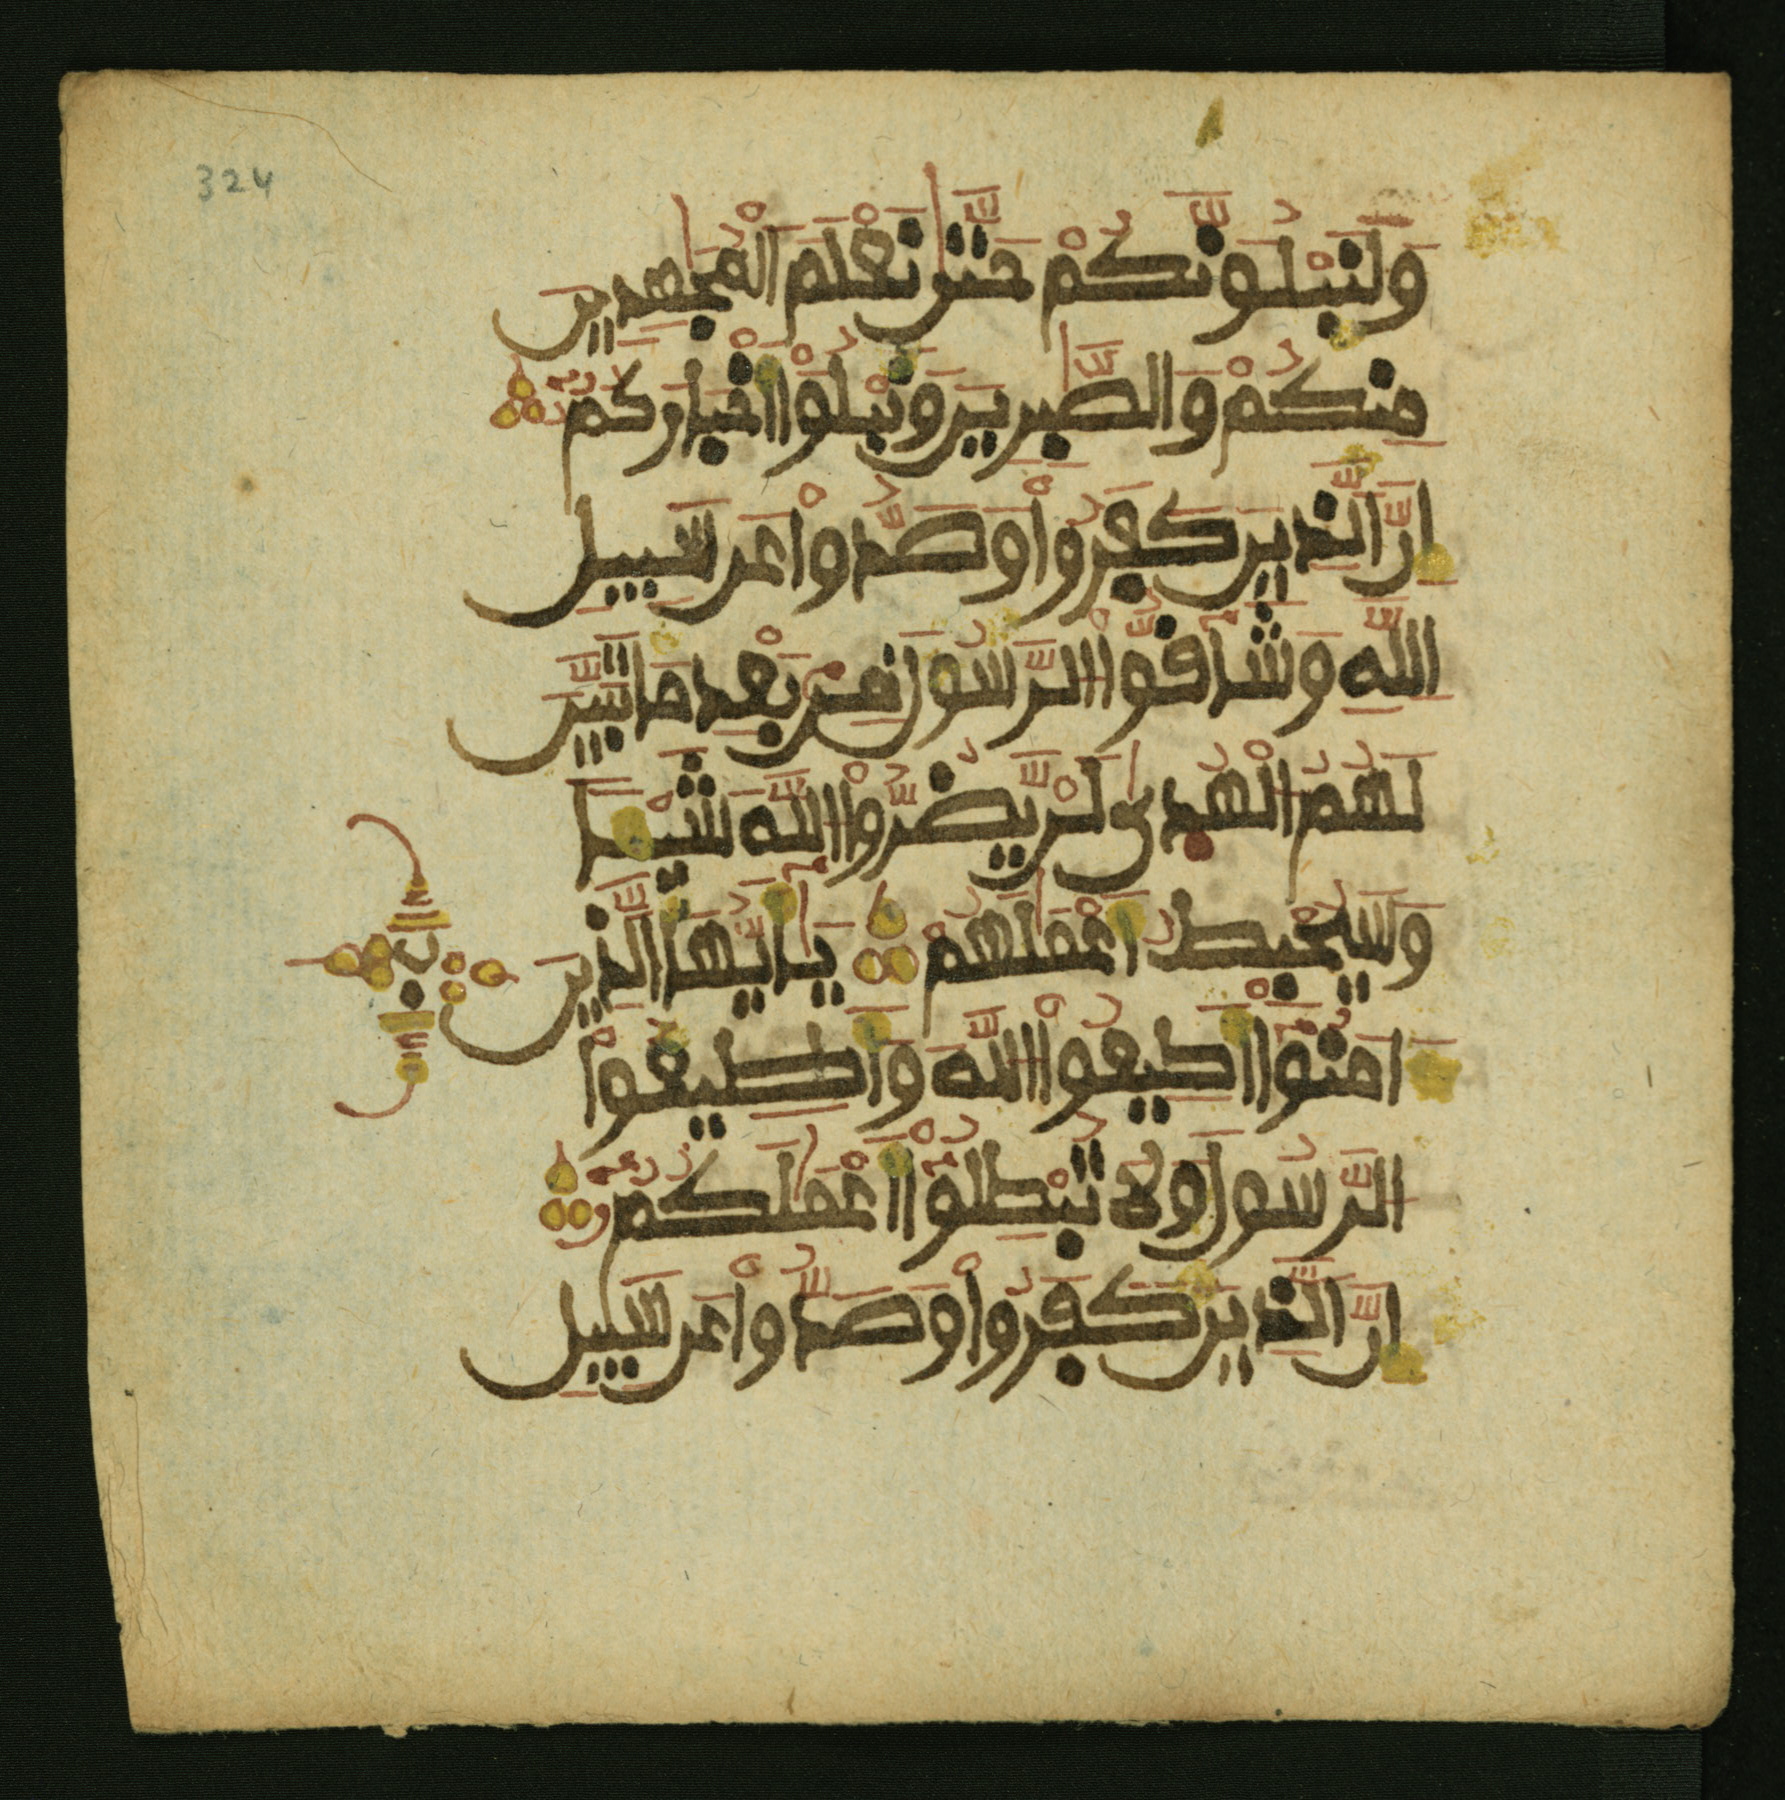 324
وَلَنَبْلُوَنَّكُمْ حَتَّىٰ نَعْلَمَ الْمُجَٰهِدِينَ
مِنكُمْ وَالصَّٰبِرِينَ وَنَبْلُوَاْ أَخْبَارَكُمْ
إِنَّ الَّذِينَ كَفَرُواْ وَصَدُّواْ عَن سَبِيلِ
اللَّهِ وَشَآقُّواْ الرَّسُولَ مِنۢ بَعْدِ مَا تَبَيَّنَ
لَهُمُ الْهُدَىٰ لَنْ يَّضُرُّواْ اللَّهَ شَيْـًٔا
وَسَيُحْبِطُ أَعْمَٰلَهُمْ يَٰٓأَيُّهَا الَّذِينَ
ءَامَنُوٓاْ أَطِيعُواْ اللَّهَ وَأَطِيعُواْ
الرَّسُولَ وَلَا تُبْطِلُوٓاْ أَعْمَٰلَكُمْ
إِنَّ الَّذِينَ كَفَرُواْ وَصَدُّواْ عَن سَبِيلِ